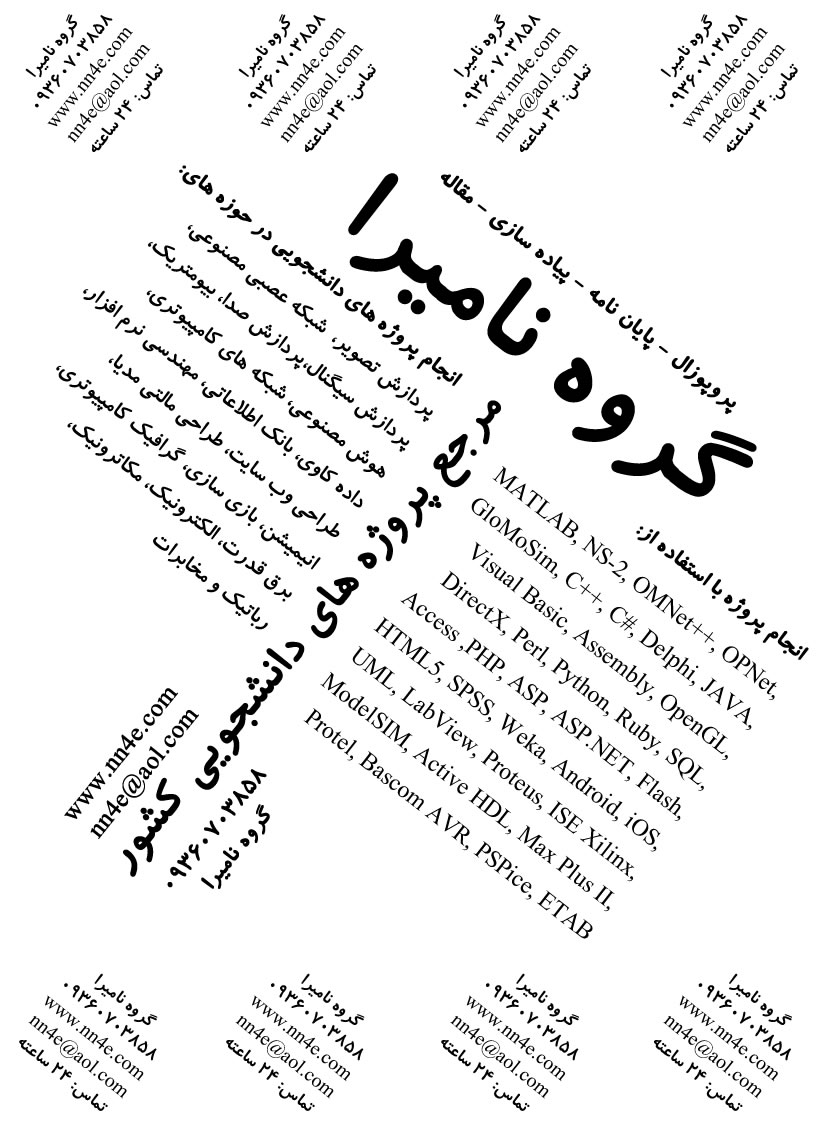 گروه نامیرا
۰۹۳۶۰۷۰۳۸۵۸
www.nn4e.com
nn4e@aol.com
تماس: ۲۴ ساعته
گروه نامیرا
۰۹۳۶۰۷۰۳۸۵۸
www.nn4e.com
nn4e@aol.com
تماس: ۲۴ ساعته
گروه نامیرا
۰۹۳۶۰۷۰۳۸۵۸
www.nn4e.com
nn4e@aol.com
تماس: ۲۴ ساعته
گروه نامیرا
۰۹۳۶۰۷۰۳۸۵۸
www.nn4e.com
nn4e@aol.com
تماس: ۲۴ ساعته
پروپوزال - پایان نامه - پیاده سازی - مقاله
گروه نامیرا
مرجع پروژه های دانشجویی کشور
انجام پروژه های دانشجویی در حوزه های:
پردازش تصویر، شبکه عصبی مصنوعی،
پردازش سیگنال،پردازش صدا، بیومتریک،
هوش مصنوعی، شبکه های کامپیوتری،
داده کاوی، بانک اطلاعاتی، مهندسی نرم افزار،
طراحی وب سایت، طراحی مالتی مدیا،
انیمیشن، بازی سازی، گرافیک کامپیوتری،
برق قدرت، الکترونیک، مکاترونیک،
رباتیک و مخابرات
انجام پروژه با استفاده از:
MATLAB, NS-2, OMNet++, OPNet,
GloMoSim, C++, C#, Delphi, JAVA,
Visual Basic, Assembly, OpenGL,
DirectX, Perl, Python, Ruby, SQL,
Access ,PHP, ASP, ASP.NET, Flash,
HTML5, SPSS, Weka, Android, iOS,
UML, LabView, Proteus, ISE Xilinx,
ModelSIM, Active HDL, Max Plus II,
Protel, Bascom AVR, PSPice, ETAB
www.nn4e.com
nn4e@aol.com
۰۹۳۶۰۷۰۳۸۵۸
گروه نامیرا
گروه نامیرا
۰۹۳۶۰۷۰۳۸۵۸
www.nn4e.com
nn4e@aol.com
تماس: ۲۴ ساعته
گروه نامیرا
۰۹۳۶۰۷۰۳۸۵۸
www.nn4e.com
nn4e@aol.com
تماس: ۲۴ ساعته
گروه نامیرا
۰۹۳۶۰۷۰۳۸۵۸
www.nn4e.com
nn4e@aol.com
تماس: ۲۴ ساعته
گروه نامیرا
۰۹۳۶۰۷۰۳۸۵۸
www.nn4e.com
nn4e@aol.com
تماس: ۲۴ ساعته